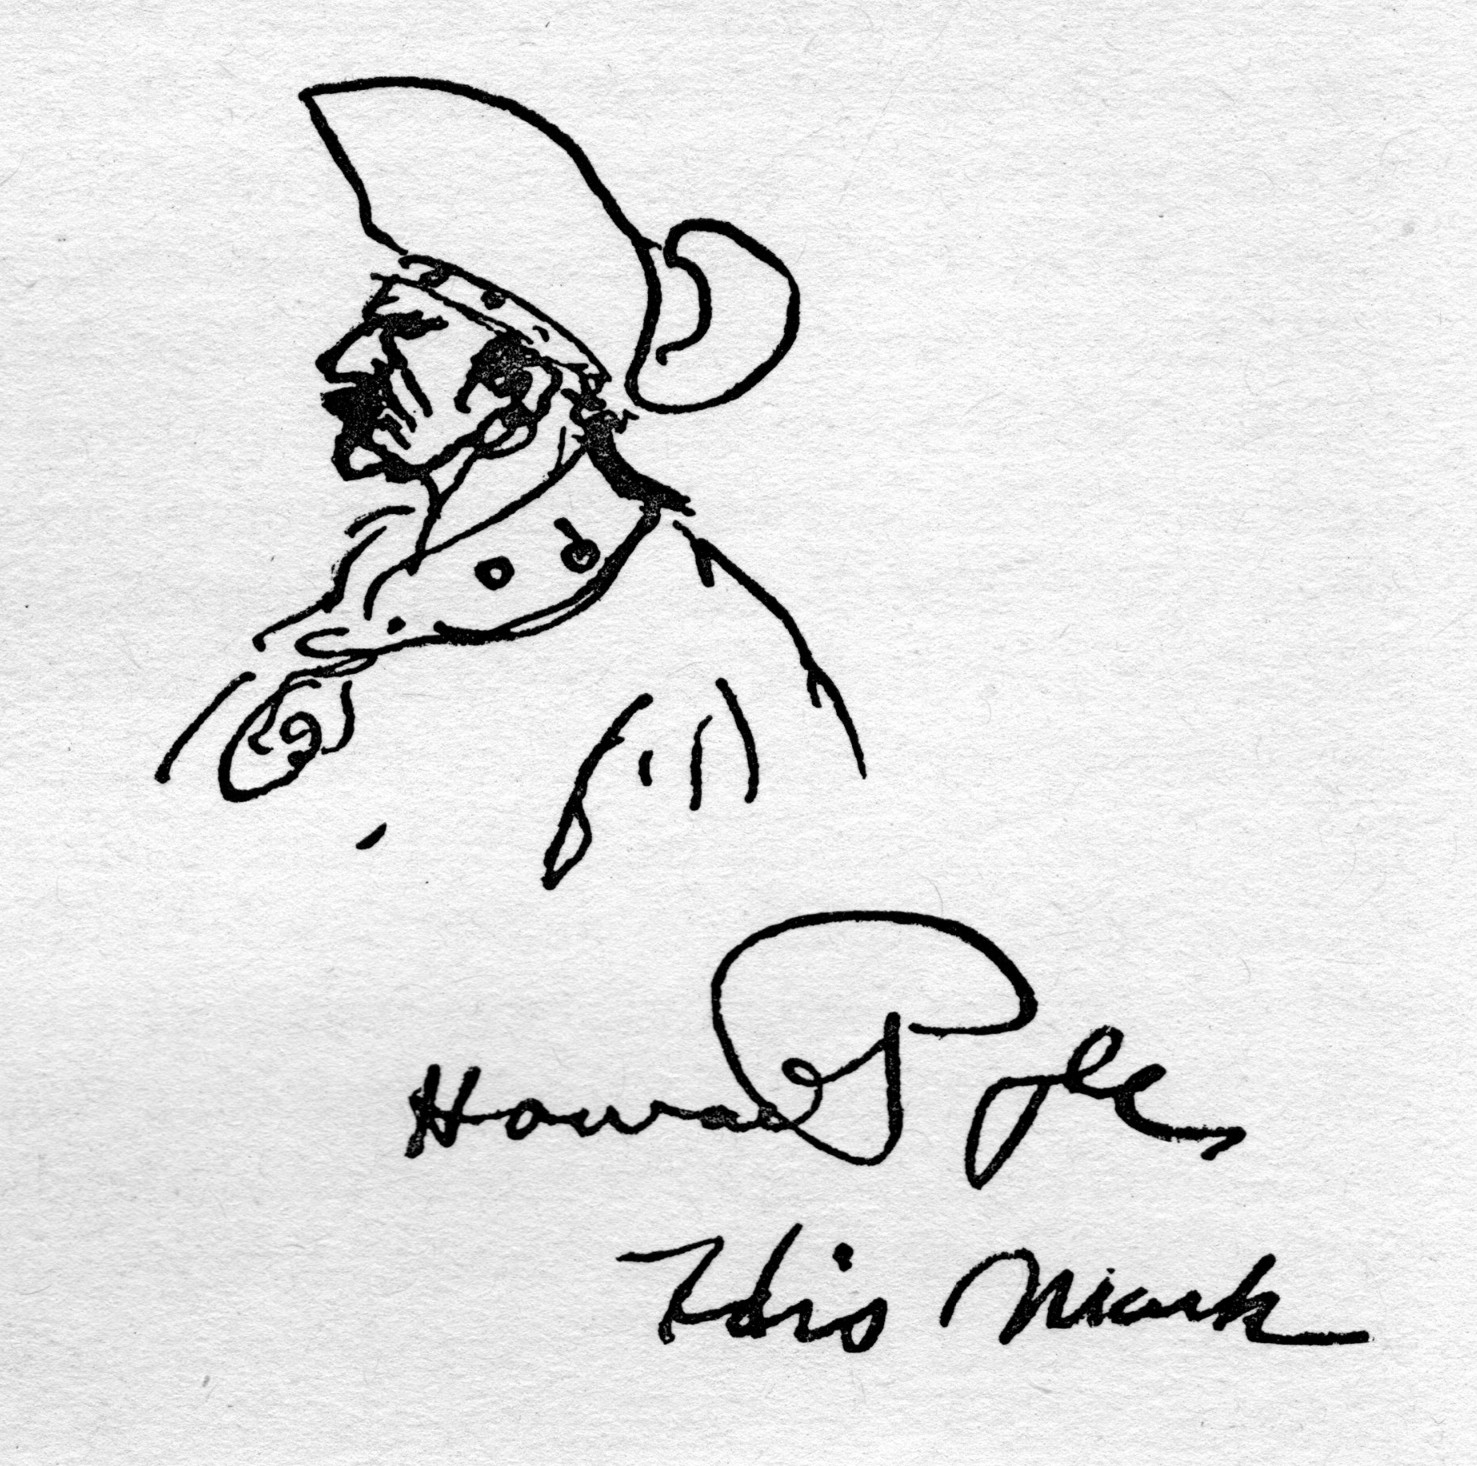 Howard Pyle
His Mark